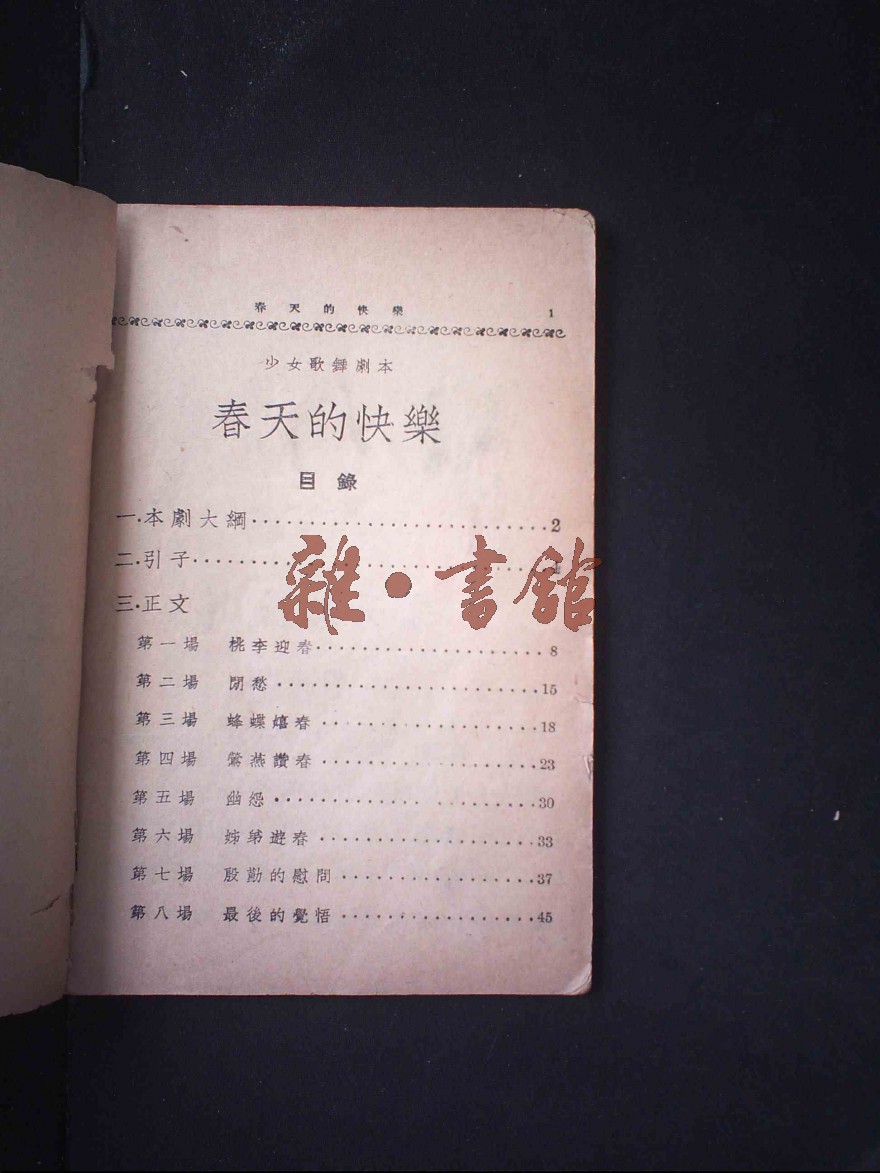 春天的快樂 1
少女歌舞劇本
春天的快樂
目錄
一.本劇大綱··························2
二.引子··························
雜·書館
三.正文
第一場 桃李迎春····················8
第二場 閒愁·······················15
第三場 蜂蝶嬉春···················18
第四場 鶯燕讚春···················23
第五場 幽怨·······················30
第六場 姊弟遊春···················33
第七場 殷勤的慰問·················37
第八場 最後的覺悟·················45